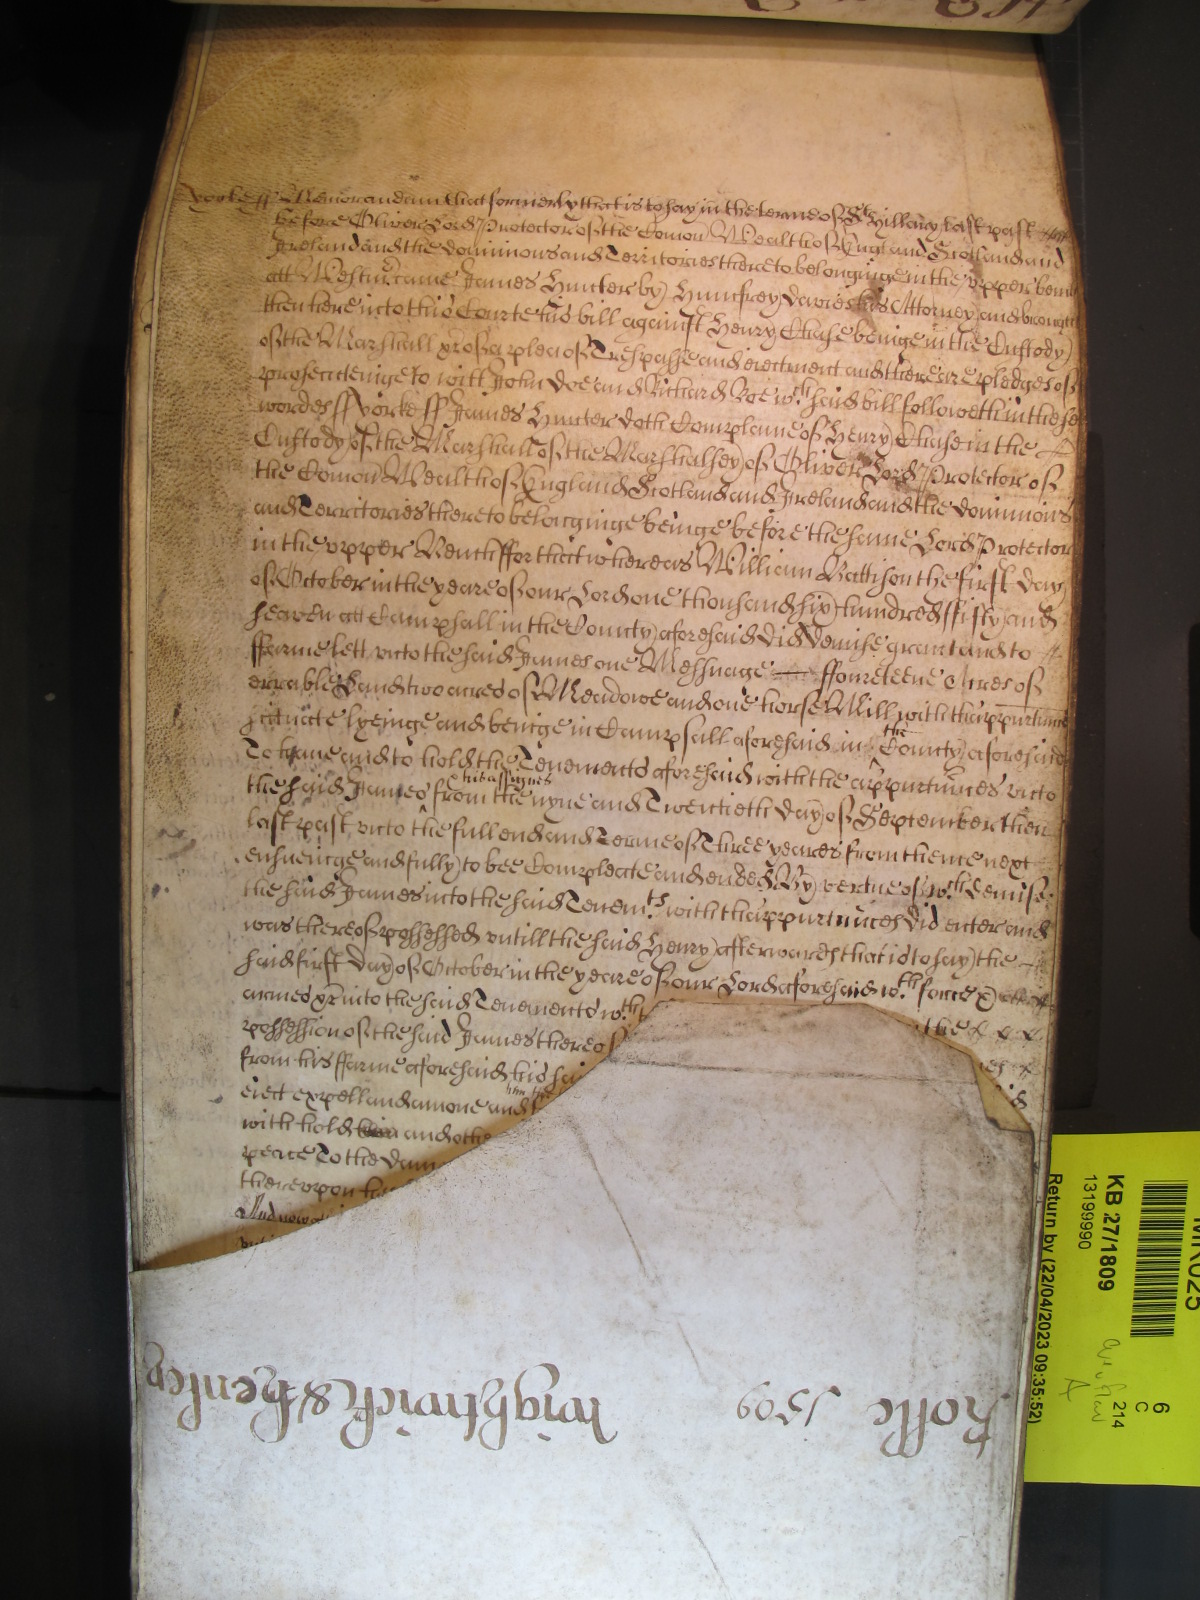 Yorke ss Memorandum that formerly that is to say in the terme of St Hillary last past
before Oliver Lord Protector of the Comon Wealth of England Scotland and
Ireland and the dominions and Territories thereto belonginge in the upper bench
att Westmr came James Hunter by Humfrey Davies his Attorney and brought
then here into this Courte his bill against Henry Chase beinge in the Custody
of the Marshall &c of a plea of Trespasse and eiectment and there are pledges of
prosecuteinge to witt John Doe and Richard Roe wch said bill followeth in these
wordes ss Yorke ss James Hunter doth Complaine of Henry Chase in the
Custody of the Marshall of the Marshalsey of Oliver Lord Protector of
the Comon Wealth of England Scotland and Ireland and the dominions
and Territories thereto belonginge beinge before the same Lord Protector
in the upper Bench ffor that whereas William Battison the first day
of October in the yeare of our Lord one thousand six hundred ffifty and
seaven att Campsall in the County aforesaid did demise grant and to
ffarme lett unto the said James one Messuage ffoureteene Acres of
errable Land two acres of Meadowe and one horse Mill with thappurtnnces
scituate lyeinge and beinge in Campsall aforesaid in the County aforesaid
To have and to hold the Tenements aforesaid with the appurtnnces unto
the said James & his assignes from the nyne and Twentieth day of September then
last past unto the full end and Terme of Three yeares from thence next
ensueinge and fully to bee Compleate and ended By vertue of wch demise
the said James into the said Tenemts with thappurtnnces did enter and
was thereof possessed untill the said Henry afterwards that is to say the
said first day of October in the yeare of our Lord aforesaid wth force &
armes &c into the said Tenements wth
possession of the said James thereof the
from his ffarme aforesaid his sai
eiect expell and amove and him the
with hold and othe
peace To the dam
thereupon hee
And now att
Rolle 1509 Wightwick & Henley
KB 27/1809
13199990
Return by (22/04/2023 09:35:52)
6
C
214